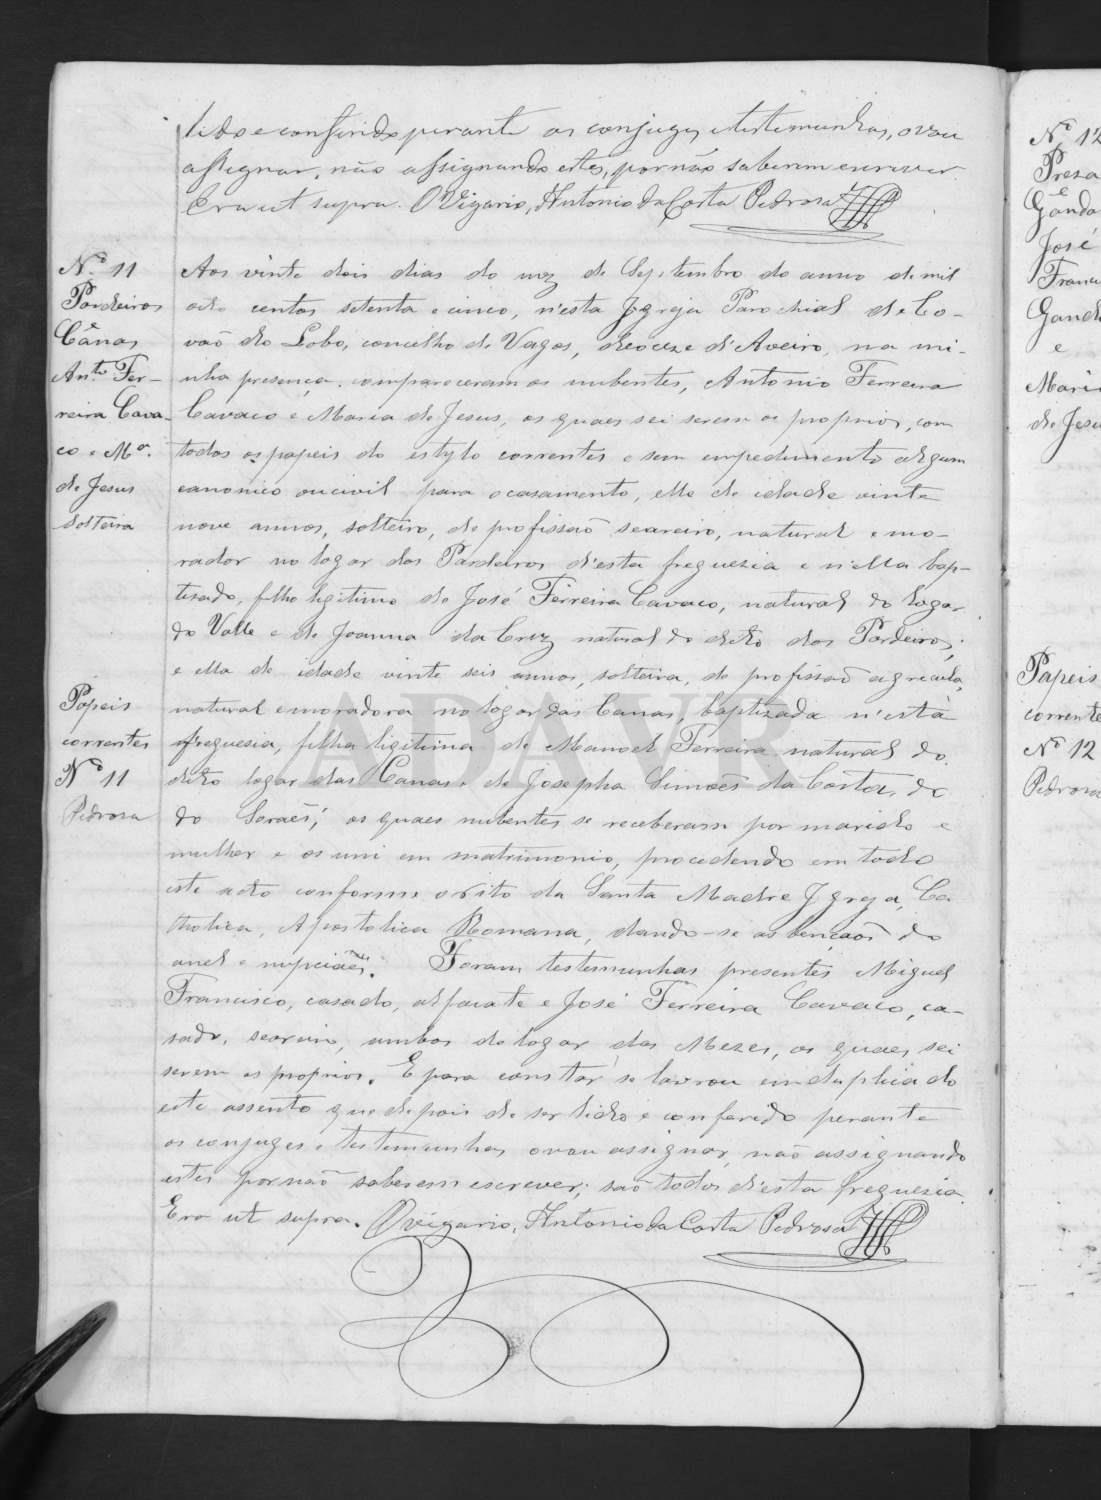 lido e conferido perante os conjuges e testemunhas, o vou
assignar, não assignando estes, por não saberem escrever.
Era ut supra. O Vigario, Antonio da Costa Pedrosa
Nº 11
Pardeiros
e
Cânas
Antº Fer-
reira Cava-
co e Mª
de Jesus
Solteira
Aos vinte dois dias do mez de Septembro do anno de mil
oito centos setenta e cinco, n'esta Igreja Parochial de Co-
vão do Lobo, concelho de Vagos, diocese d'Aveiro, na mi-
nha presença, compareceram os nubentes, Antonio Ferreira
Cavaco e Maria de Jesus, os quaes sei serem os proprios, com
todos os papeis do estylo correntes e sem empedimento algum
canonico ou civil para o casamento, elle de idade vinte
nove annos, solteiro, de profissão seareiro, natural e mo-
rador no logar dos Pardeiros d'esta freguezia e n'ella bap-
tisado, filho ligitimo de José Ferreira Cavaco, natural do logar
do Valle e de Joanna da Cruz natural do dito dos Pardeiros;
e ella de idade vinte seis annos, solteira, de profissão agricula,
natural e moradora no logar das Canas, baptizada n'esta
freguesia, filha ligitima de Manoel Ferreira natural do
dito logar das Canas e de Josepha Simões da Costa, do
de Soraes; os quaes nubentes se receberam por marido e
mulher e os uni em matrimonio, procedendo em todo
este acto conforme o rito da Santa Madre Igreja, Ca
tholica, Apostolica Romana, dando-se as bençãos do
anel e nupciaes. Foram testemunhas presentes Miguel
Francisco, casado, alfaiate e José Ferreira Cavaco, ca-
sado, seareiro, ambos do logar das Mezes, os quaes sei
serem os proprios. E para constar se lavrou em duplicado
este assento que depois de ser lido e conferido perante
os conjuges e testemunhas o vou assignar, não assignando
estes por não saberem escrever; são todos d'esta freguezia.
Era ut supra. O vigario, Antonio da Costa Pedrosa
Papeis
correntes
Nº 11
Pedrosa
ADAVR
Nº 12
Preza
e
Gândar
José
Franc
Gand
e
Mari
de Jesu
Papeis
corrente
Nº 12
Pedrosa